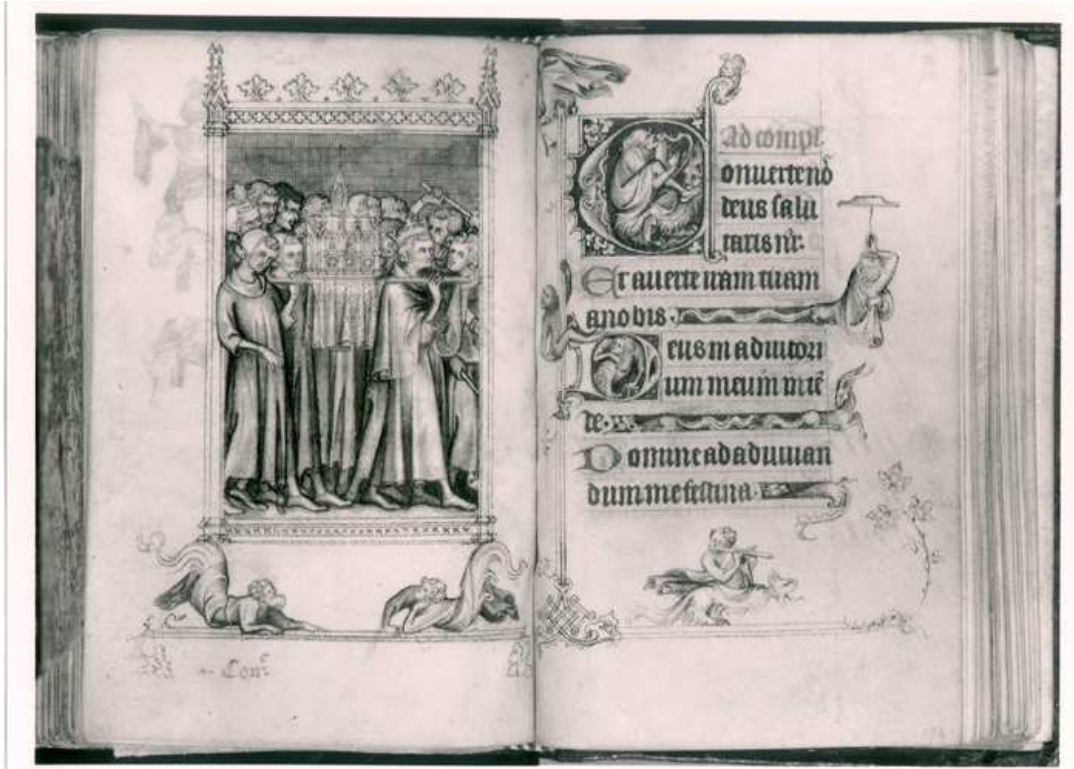 Ad compl.
onuertenꝺ
deus salu
taris nr̄.
Et auerte iram tuam
a nobis.
Deus in adiutori
um meum intē
de.
Domine ad adiuuan
dum me festina.